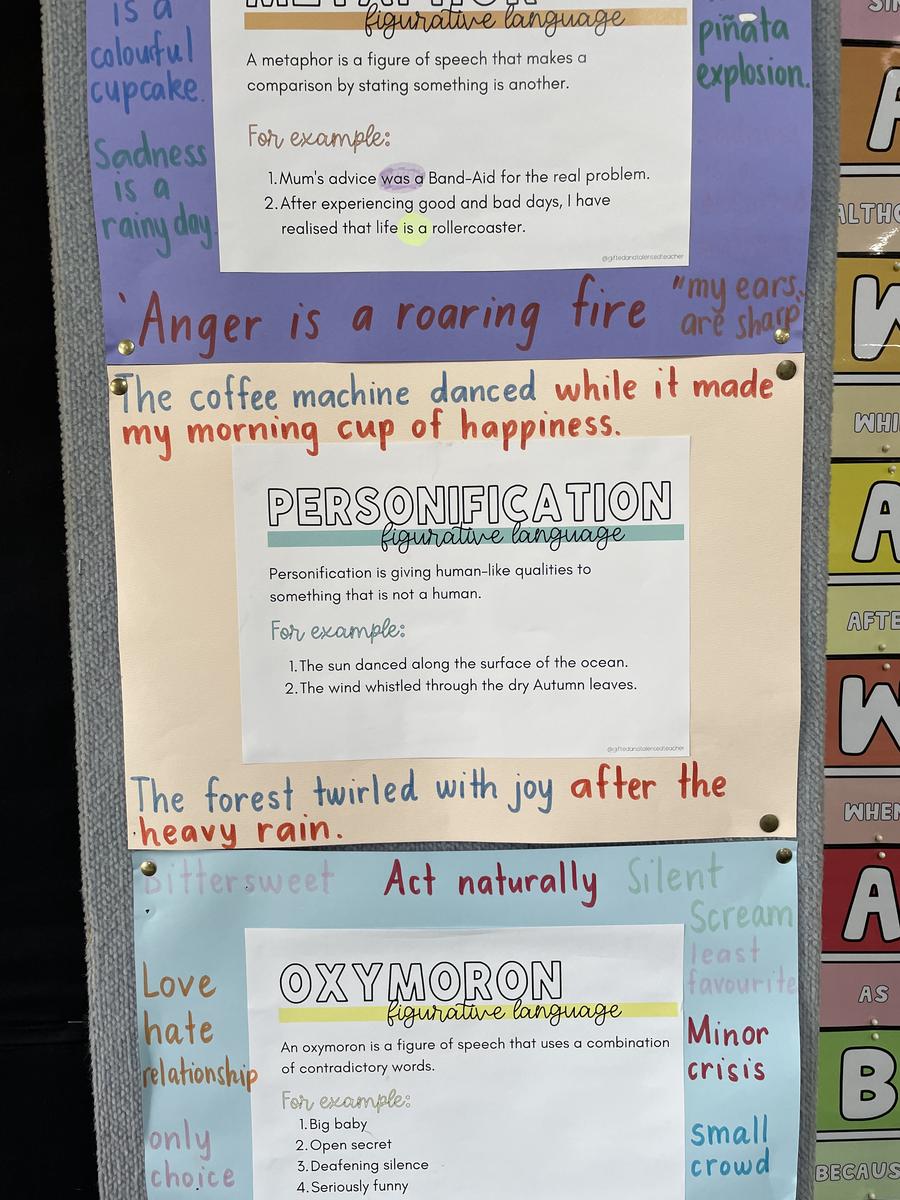 is a
colourful
cupcake.
Sadness
is a
rainy day
METAPHOR
figurative language
A metaphor is a figure of speech that makes a
comparison by stating something is another.
For example:
1. Mum's advice was a Band-Aid for the real problem.
2. After experiencing good and bad days, I have
realised that life is a rollercoaster.
@giftedandtalentedteacher
piñata
explosion.
'Anger is a roaring fire
"my ears
are sharp"
The coffee machine danced while it made
my morning cup of happiness.
PERSONIFICATION
figurative language
Personification is giving human-like qualities to
something that is not a human.
For example:
1. The sun danced along the surface of the ocean.
2. The wind whistled through the dry Autumn leaves.
@giftedandtalentedteacher
The forest twirled with joy after the
heavy rain.
Bittersweet
Act naturally
Silent
Scream
least
favourite
Love
hate
relationship
only
choice
OXYMORON
figurative language
An oxymoron is a figure of speech that uses a combination
of contradictory words.
For example:
1. Big baby
2. Open secret
3. Deafening silence
4. Seriously funny
Minor
crisis
small
crowd
A
W
WHI
A
AFTE
W
WHEN
A
AS
B
BECAUS